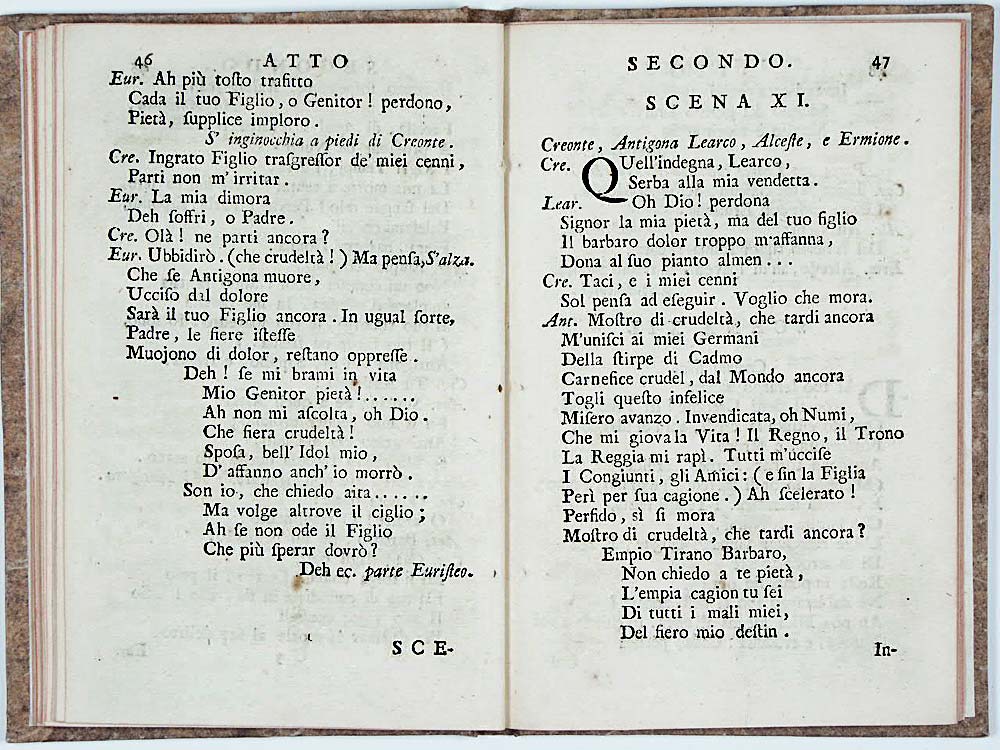 46 ATTO
Eur. Ah più toſto trafitto
Cada il tuo Figlio, o Genitor! perdono,
Pietà, ſupplice imploro.
S' inginocchia a piedi di Creonte.
Cre. Ingrato Figlio traſgreſſor de' miei cenni,
Parti non m' irritar.
Eur. La mia dimora
Deh ſoffri, o Padre.
Cre. Olà! ne parti ancora?
Eur. Ubbidirò. (che crudeltà!) Ma penſa, S'alza.
Che ſe Antigona muore,
Ucciſo dal dolore
Sarà il tuo Figlio ancora. In ugual ſorte,
Padre, le fiere iſteſſe
Muojono di dolor, reſtano oppreſſe.
Deh! ſe mi brami in vita
Mio Genitor pietà!......
Ah non mi aſcolta, oh Dio.
Che fiera crudeltà!
Spoſa, bell' Idol mio,
D' affanno anch' io morrò.
Son io, che chiedo aita......
Ma volge altrove il ciglio;
Ah ſe non ode il Figlio
Che più ſperar dovrò?
Deh ec. parte Euriſteo.
SCE-
SECONDO. 47
SCENA XI.
Creonte, Antigona Learco, Alceſte, e Ermione.
Cre. QUell'indegna, Learco,
Serba alla mia vendetta.
Lear. Oh Dio! perdona
Signor la mia pietà, ma del tuo figlio
Il barbaro dolor troppo m'affanna,
Dona al ſuo pianto almen...
Cre. Taci, e i miei cenni
Sol penſa ad eſeguir. Voglio che mora.
Ant. Moſtro di crudeltà, che tardi ancora
M'uniſci ai miei Germani
Della ſtirpe di Cadmo
Carnefice crudel, dal Mondo ancora
Togli queſto infelice
Miſero avanzo. Invendicata, oh Numi,
Che mi giova la Vita! Il Regno, il Trono
La Reggia mi rapì. Tutti m'ucciſe
I Congiunti, gli Amici: (e ſin la Figlia
Perì per sua cagione.) Ah ſcelerato!
Perfido, sì ſi mora
Moſtro di crudeltà, che tardi ancora?
Empio Tirano Barbaro,
Non chiedo a te pietà,
L'empia cagion tu ſei
Di tutti i mali miei,
Del fiero mio deſtin.
In-